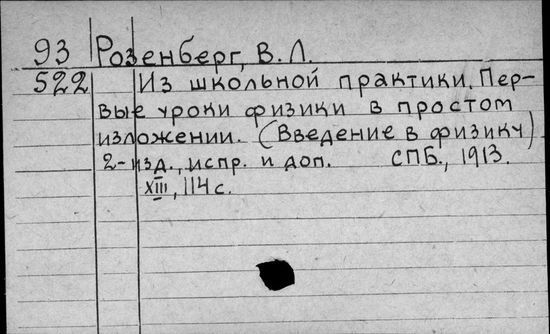 93 Розенберг, В. Л.
522 Из школьной практики. Пер-
вые уроки физики в простом
изложении. (Введение в физику)
2-изд., испр. и доп. СПБ., 1913.
XIII, 114 с.